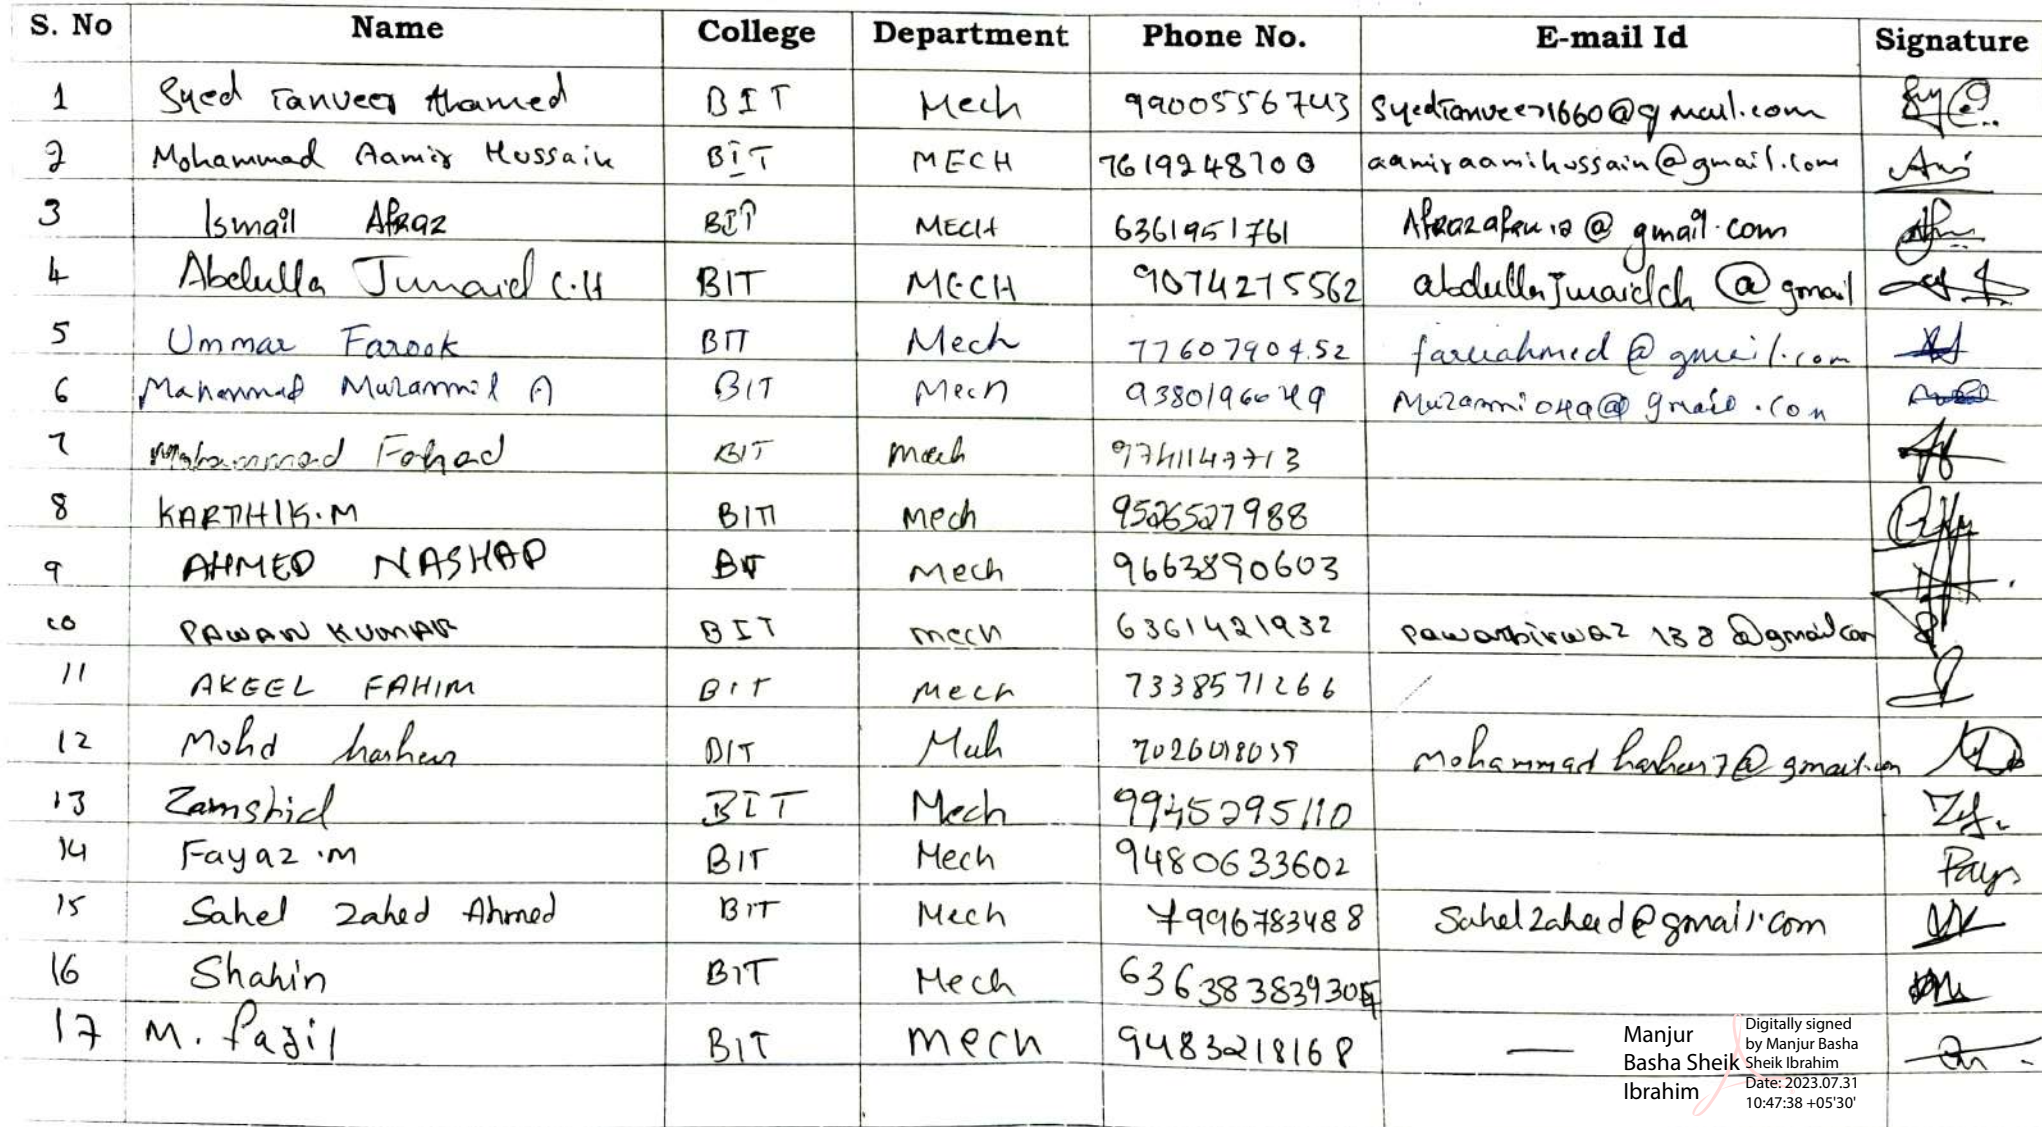 S. No Name College Department Phone No. E-mail Id Signature
1 Syed Tanveer Ahamed BIT Mech 9900556743 syedTanveer1660@gmail.com
2 Mohammad Aamir Hussain BIT MECH 7619248700 aamiraamihussain@gmail.com
3 Ismail Afraz BIT MECH 6361951761 @gmail.com
4 Abdulla Junaid C.H BIT MECH 9074275562 abdullaJunaidch @gmail
5 Ummar Farook BIT Mech 7760790452 @gmail.com
6 Muzammil A BIT Mech
7 Mohammad Fahad BIT mech 9741147713
8 KARTHIK.M BIT Mech 9526527988
9 AHMED NASHAD BIT Mech 9663890603
10 PAWAN KUMAR BIT mech 6361421932
11 AKEEL FAHIM BIT Mech 7338571266
12 Mohd BIT
13 Zamshid BIT Mech 9945295110
14 Fayaz .M BIT Mech 9480633602
15 Sahel Zahed Ahmed BIT Mech 7996783488 Sahelzahed@gmail.com
16 Shahin BIT Mech
17 M. Fazil BIT mech 9483218168 —
Manjur
Basha Sheik
Ibrahim
Digitally signed
by Manjur Basha
Sheik Ibrahim
Date: 2023.07.31
10:47:38 +05'30'